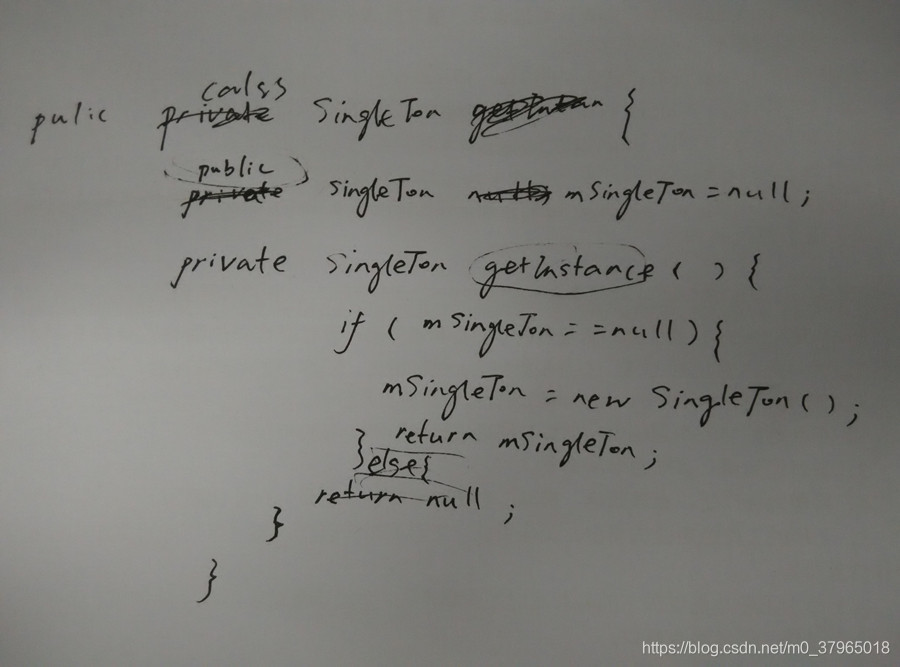 calss
pulic private SingleTon {
public
private SingleTon mSingleTon = null ;
private SingleTon getInstance ( ) {
if ( mSingleTon = = null ) {
mSingleTon = new SingleTon ( ) ;
return mSingleTon ;
} else {
return null ;
}
}
https://blog.csdn.net/m0_37965018